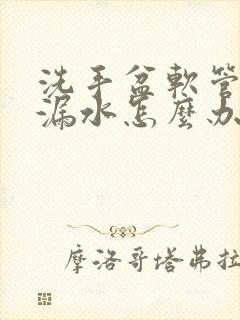 洗手盆軟管
漏水怎麼办
摩洛哥塔弗拉